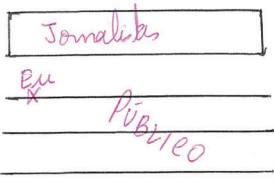 Jornalistas
Eu
x
PÚBLICO